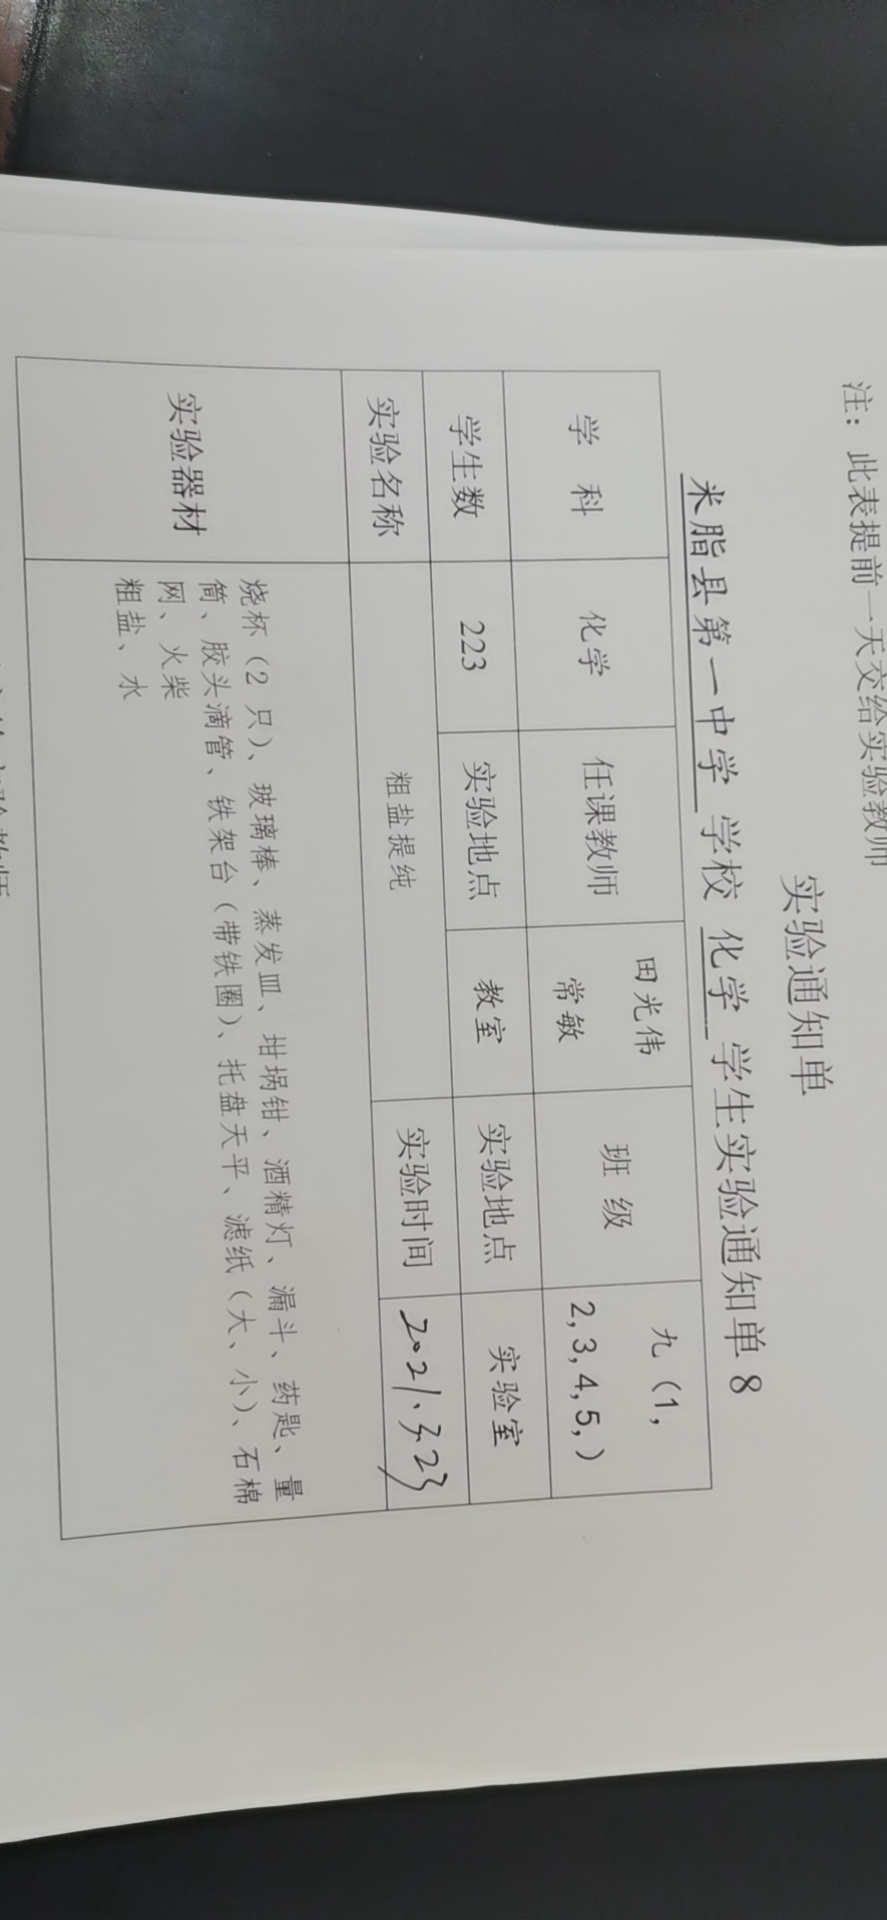 注：此表提前一天交给实验教师
实验通知单
米脂县第一中学 学校 化学 学生实验通知单 8
学 科 化学 任课教师 田光伟 常敏 班 级 九（1，2,3,4,5,）
学生数 223 实验地点 教室 实验地点 实验室
实验名称 粗盐提纯 实验时间 2021.3.23
实验器材
烧杯（2 只）、玻璃棒、蒸发皿、坩埚钳、酒精灯、漏斗、药匙、量
筒、胶头滴管、铁架台（带铁圈）、托盘天平、滤纸（大、小）、石棉
网、火柴
粗盐、水